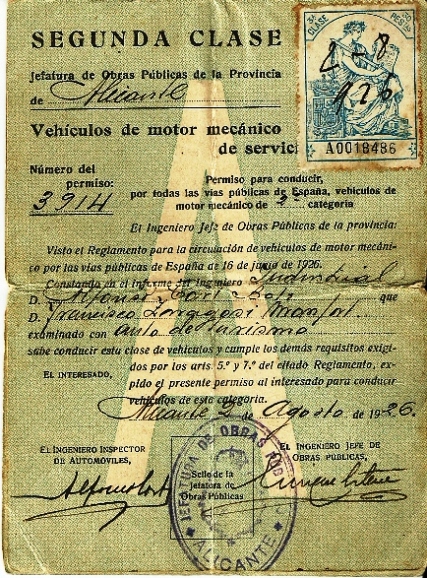 SEGUNDA CLASE
3ª CLASE
20 PESETAS
2-8
926
A0018486
Jefatura de Obras Públicas de la Provincia
de Alicante
Vehículos de motor mecánico
de servici
Número del
permiso:
3914
Permiso para conducir,
por todas las vías públicas de España, vehículos de
motor mecánico de 2ª categoría
El Ingeniero Jefe de Obras Públicas de la provincia:
Visto el Reglamento para la circulación de vehículos de motor mecáni-
co por las vías públicas de España de 16 de junio de 1926.
Constando en el informe del Ingeniero Industrial
D. Alfonso que
D. Francisco Monfort
examinado con auto de turismo
sabe conducir esta clase de vehículos y cumple los demás requisitos exigi-
dos por los arts. 5.º y 7.º del citado Reglamento, ex-
pido el presente permiso al interesado para conducir
vehículos de esta categoría.
EL INTERESADO,
Alicante 2 de Agosto de 1926.
EL INGENIERO INSPECTOR
DE AUTOMÓVILES,
EL INGENIERO JEFE DE
OBRAS PÚBLICAS,
Sello de la
Jefatura de
Obras Públicas
JEFATURA DE OBRAS PUB
ALICANTE